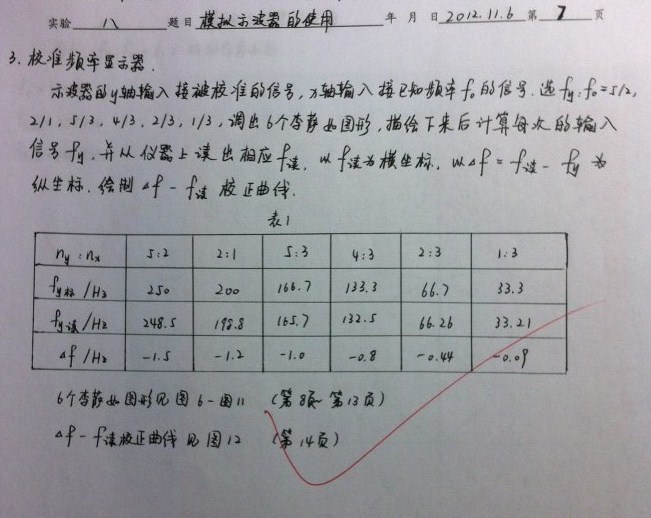 实验 八 题目 模拟示波器的使用 年 月 日 2012.11.6 第 7 页
3. 校准频率显示器.
示波器的y轴输入接被校准的信号, x轴输入接已知频率f₀的信号. 选fy:f₀=5/2,
2/1, 5/3, 4/3, 2/3, 1/3, 调出6个李萨如图形, 描绘下来后计算每次的输入
信号fy, 并从仪器上读出相应f读, 以f读为横坐标, 以Δf=f读-fy为
纵坐标, 绘制Δf-f读校正曲线.
表1
ny:nx 5:2 2:1 5:3 4:3 2:3 1:3
fy标/Hz 250 200 166.7 133.3 66.7 33.3
fy读/Hz 248.5 198.8 165.7 132.5 66.26 33.21
Δf/Hz -1.5 -1.2 -1.0 -0.8 -0.44 -0.09
6个李萨如图形见图6-图11 (第8页~第13页)
Δf-f读校正曲线见图12 (第14页)